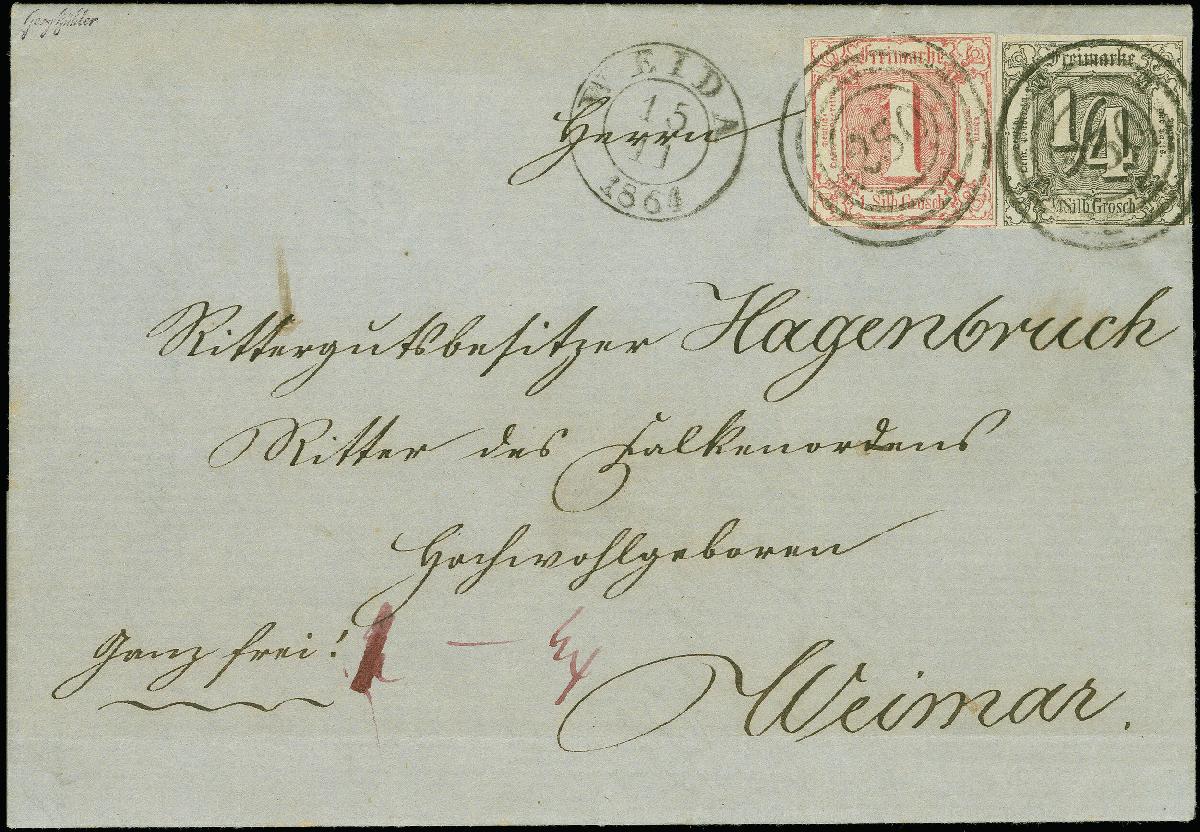 WEIDA
15
11
1864
Freimarke
1
1 Silb Grosch
250
Freimarke
1/4
1/4 Silb Grosch
Herrn
Rittergutsbesitzer Hagenbruch
Ritter des Falkenordens
Hochwohlgeboren
Ganz frei!
Weimar.